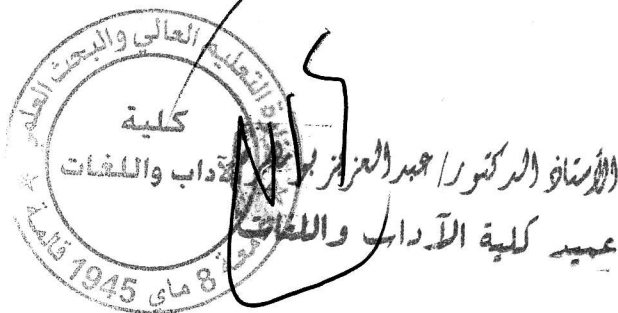 وزارة التعليم العالي والبحث العلمي
كلية
الآداب واللغات
جامعة 8 ماي 1945 قالمة
الأستاذ الدكتور/ عبد العزيز
عميد كلية الآداب واللغات